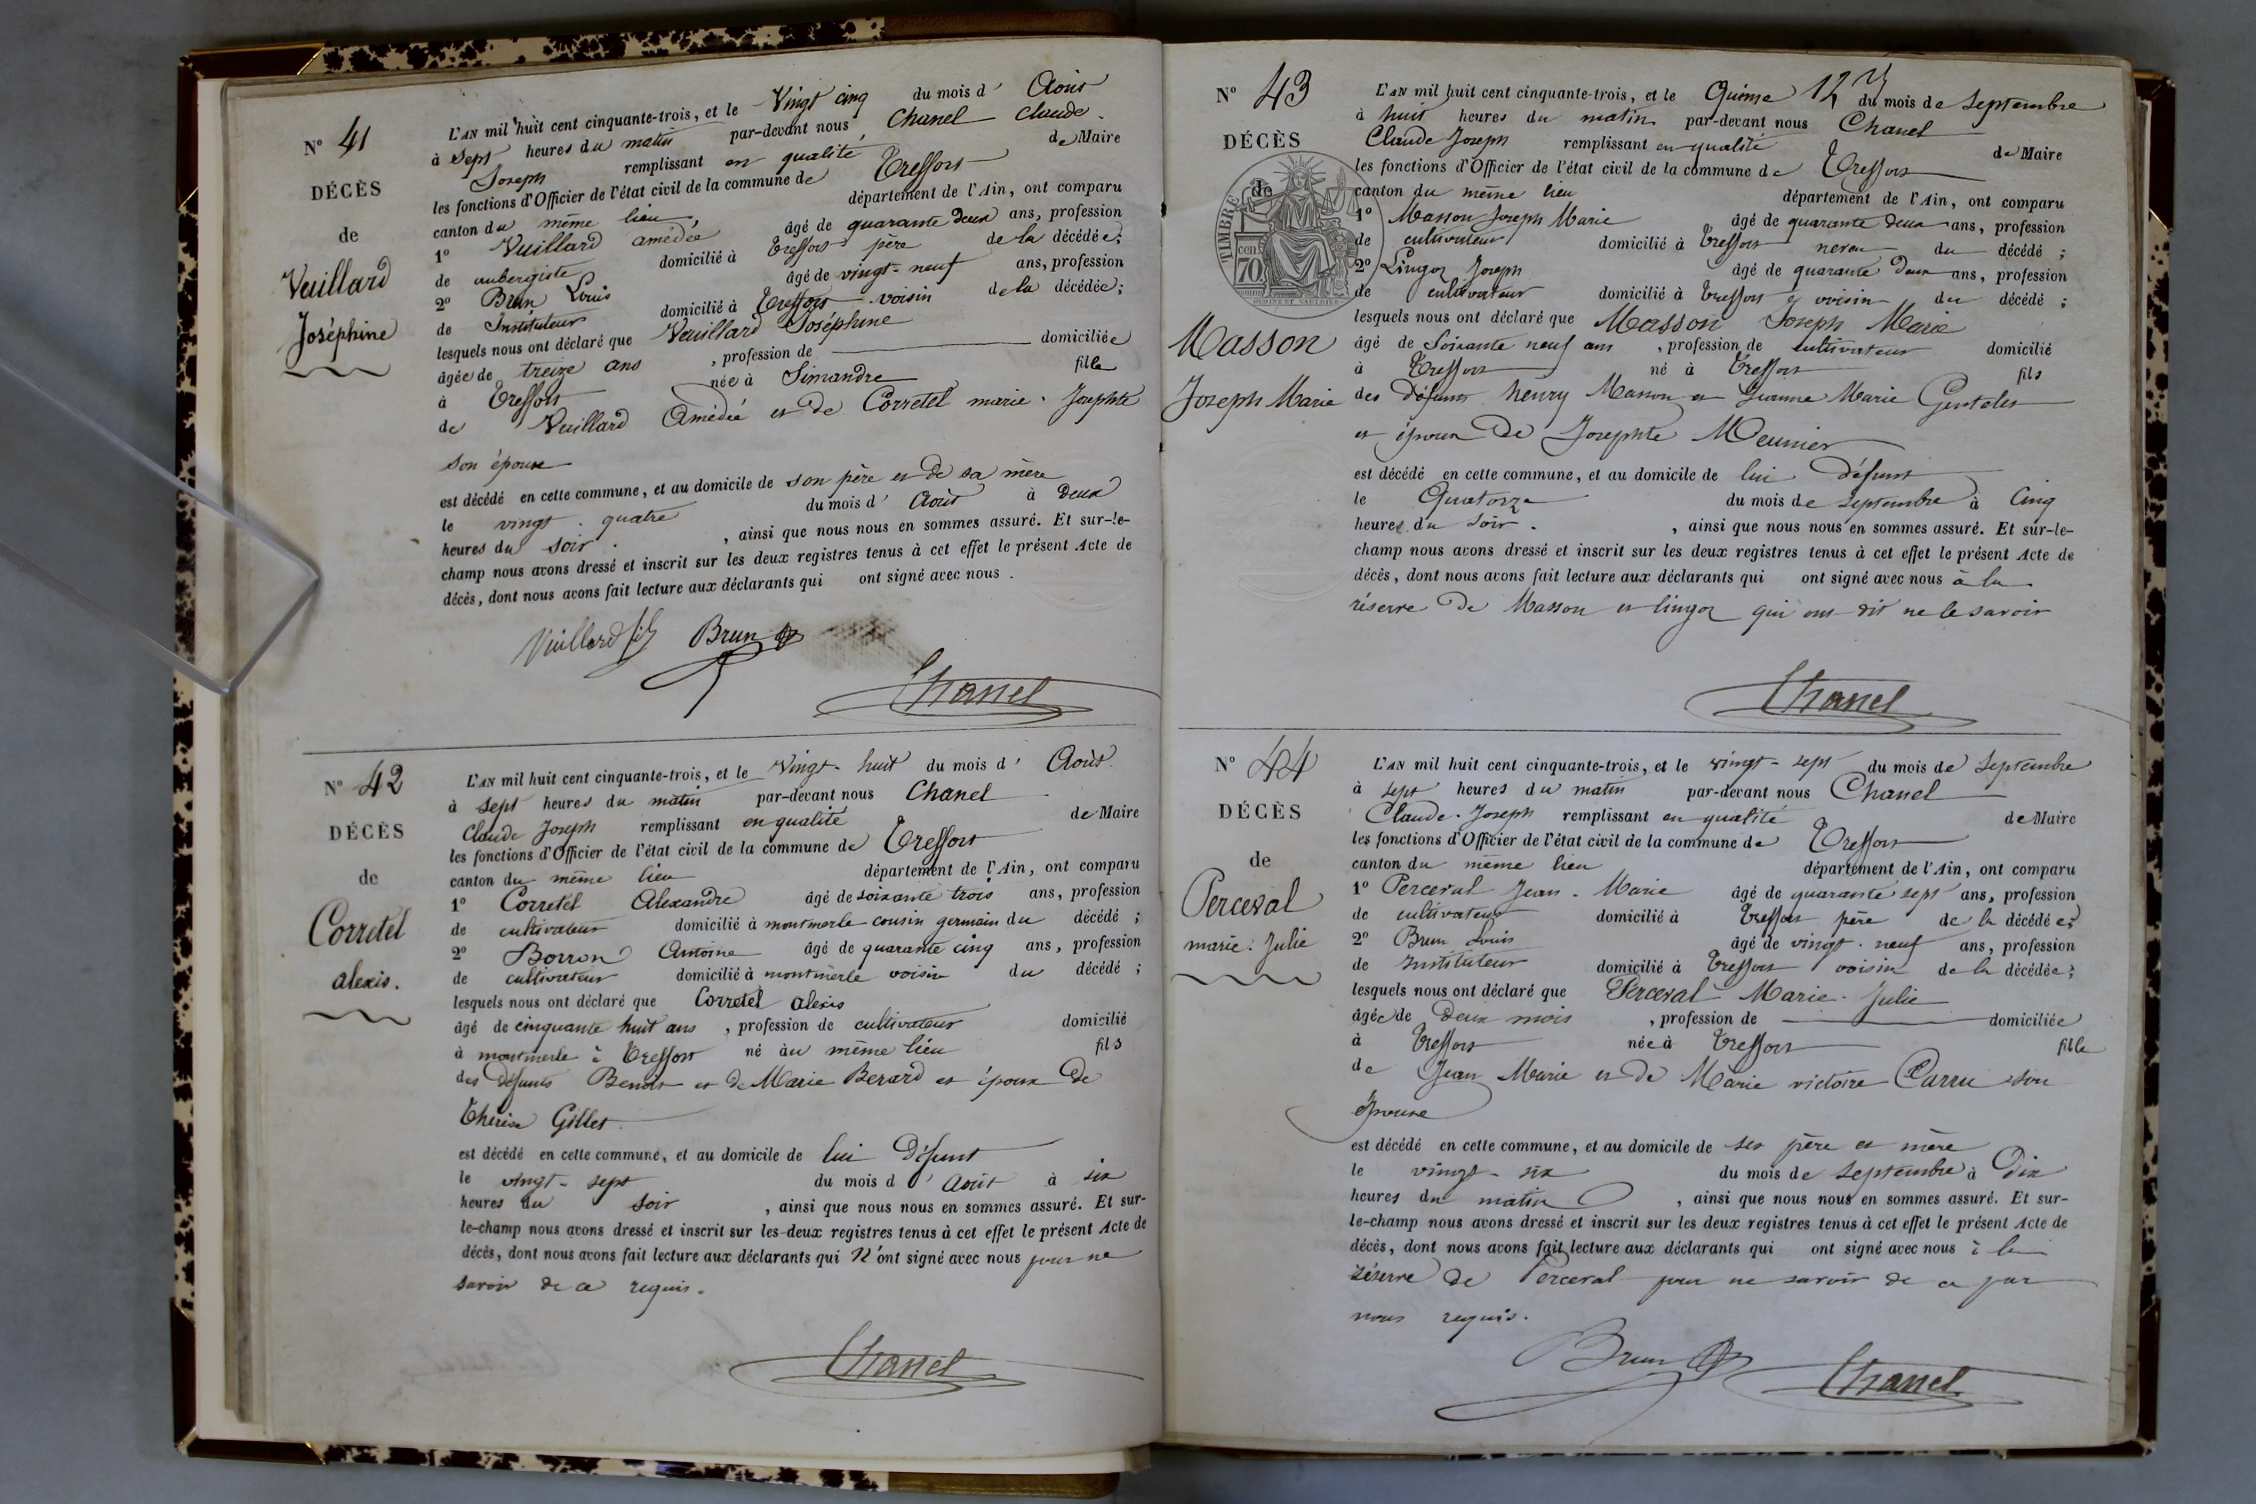 N° 41
DÉCÈS
de
Vuillard
Joséphine
L'AN mil huit cent cinquante-trois, et le Vingt cinq du mois d' Août
à sept heures du matin par-devant nous Chanel Claude
Joseph remplissant en qualité de Maire
les fonctions d'Officier de l'état civil de la commune de Treffort
canton du même lieu, département de l'Ain, ont comparu
1° Vuillard amédée âgé de quarante deux ans, profession
de aubergiste domicilié à Treffort père de la décédée;
2° Brun Louis âgé de vingt-neuf ans, profession
de Instituteur domicilié à Treffort voisin de la décédée;
lesquels nous ont déclaré que Vuillard Joséphine
âgée de treize ans, profession de domiciliée
à Treffort née à Simandre fille
de Vuillard Amédée et de Corretel marie. Josephte
son épouse
est décédé en cette commune, et au domicile de son père et de sa mère
le vingt. quatre du mois d' Août à deux
heures du soir. , ainsi que nous nous en sommes assuré. Et sur-le-
champ nous avons dressé et inscrit sur les deux registres tenus à cet effet le présent Acte de
décès, dont nous avons fait lecture aux déclarants qui ont signé avec nous.
Vuillard Brun
Chanel
N° 42
DÉCÈS
de
Corretel
alexis.
L'AN mil huit cent cinquante-trois, et le Vingt-huit du mois d' Août
à sept heures du matin par-devant nous Chanel
Claude Joseph remplissant en qualité de Maire
les fonctions d'Officier de l'état civil de la commune de Treffort
canton du même lieu département de l'Ain, ont comparu
1° Corretel Alexandre âgé de soixante trois ans, profession
de cultivateur domicilié à montmerle cousin germain du décédé;
2° Borron Antoine âgé de quarante cinq ans, profession
de cultivateur domicilié à montmerle voisin du décédé;
lesquels nous ont déclaré que Corretel alexis
âgé de cinquante huit ans, profession de cultivateur domicilié
à montmerle à Treffort né au même lieu fils
des défunts Benoit et de Marie Berard et époux De
Thérèse Gillet
est décédé en cette commune, et au domicile de lui Défunt
le vingt-sept du mois d' Août à six
heures du soir, ainsi que nous nous en sommes assuré. Et sur-
le-champ nous avons dressé et inscrit sur les deux registres tenus à cet effet le présent Acte de
décès, dont nous avons fait lecture aux déclarants qui n'ont signé avec nous pour ne
savoir de ce requis.
Chanel
N° 43
DÉCÈS
de
TIMBRE
70
Masson
Joseph Marie
L'AN mil huit cent cinquante-trois, et le Quinze du mois de Septembre
à huit heures du matin par-devant nous Chanel
Claude Joseph remplissant en qualité de Maire
les fonctions d'Officier de l'état civil de la commune de Treffort
canton du même lieu département de l'Ain, ont comparu
1° Masson Joseph Marie âgé de quarante deux ans, profession
de cultivateur domicilié à Treffort neveu du décédé;
2° Lingoz Joseph âgé de quarante deux ans, profession
de cultivateur domicilié à Treffort et voisin du décédé;
lesquels nous ont déclaré que Masson Joseph Marie
âgé de Soixante neuf ans, profession de cultivateur domicilié
à Treffort né à Treffort fils
des défunts henry Masson et Jeanne Marie
et époux De Josephte Meunier
est décédé en cette commune, et au domicile de lui défunt
le Quatorze du mois de Septembre à Cinq
heures du soir. , ainsi que nous nous en sommes assuré. Et sur-le-
champ nous avons dressé et inscrit sur les deux registres tenus à cet effet le présent Acte de
décès, dont nous avons fait lecture aux déclarants qui ont signé avec nous à la
réserve de Masson et lingoz qui ont dit ne le savoir
Chanel
N° 44
DÉCÈS
de
Perceval
marie. Julie
L'AN mil huit cent cinquante-trois, et le vingt-sept du mois de Septembre
à sept heures du matin par-devant nous Chanel
Claude. Joseph remplissant en qualité de Maire
les fonctions d'Officier de l'état civil de la commune de Treffort
canton du même lieu département de l'Ain, ont comparu
1° Perceval Jean-Marie âgé de quarante sept ans, profession
de cultivateur domicilié à Treffort père de la décédée;
2° Brun Louis âgé de vingt. neuf ans, profession
de Instituteur domicilié à Treffort voisin de la décédée;
lesquels nous ont déclaré que Perceval Marie. Julie
âgée de Deux mois, profession de domiciliée
à Treffort née à Treffort fille
de Jean Marie et de Marie victoire Carru son
épouse
est décédé en cette commune, et au domicile de ses père et mère
le vingt-six du mois de Septembre à Dix
heures du matin, ainsi que nous nous en sommes assuré. Et sur-
le-champ nous avons dressé et inscrit sur les deux registres tenus à cet effet le présent Acte de
décès, dont nous avons fait lecture aux déclarants qui ont signé avec nous à la
réserve de Perceval pour ne savoir de ce par
nous requis.
Brun Chanel